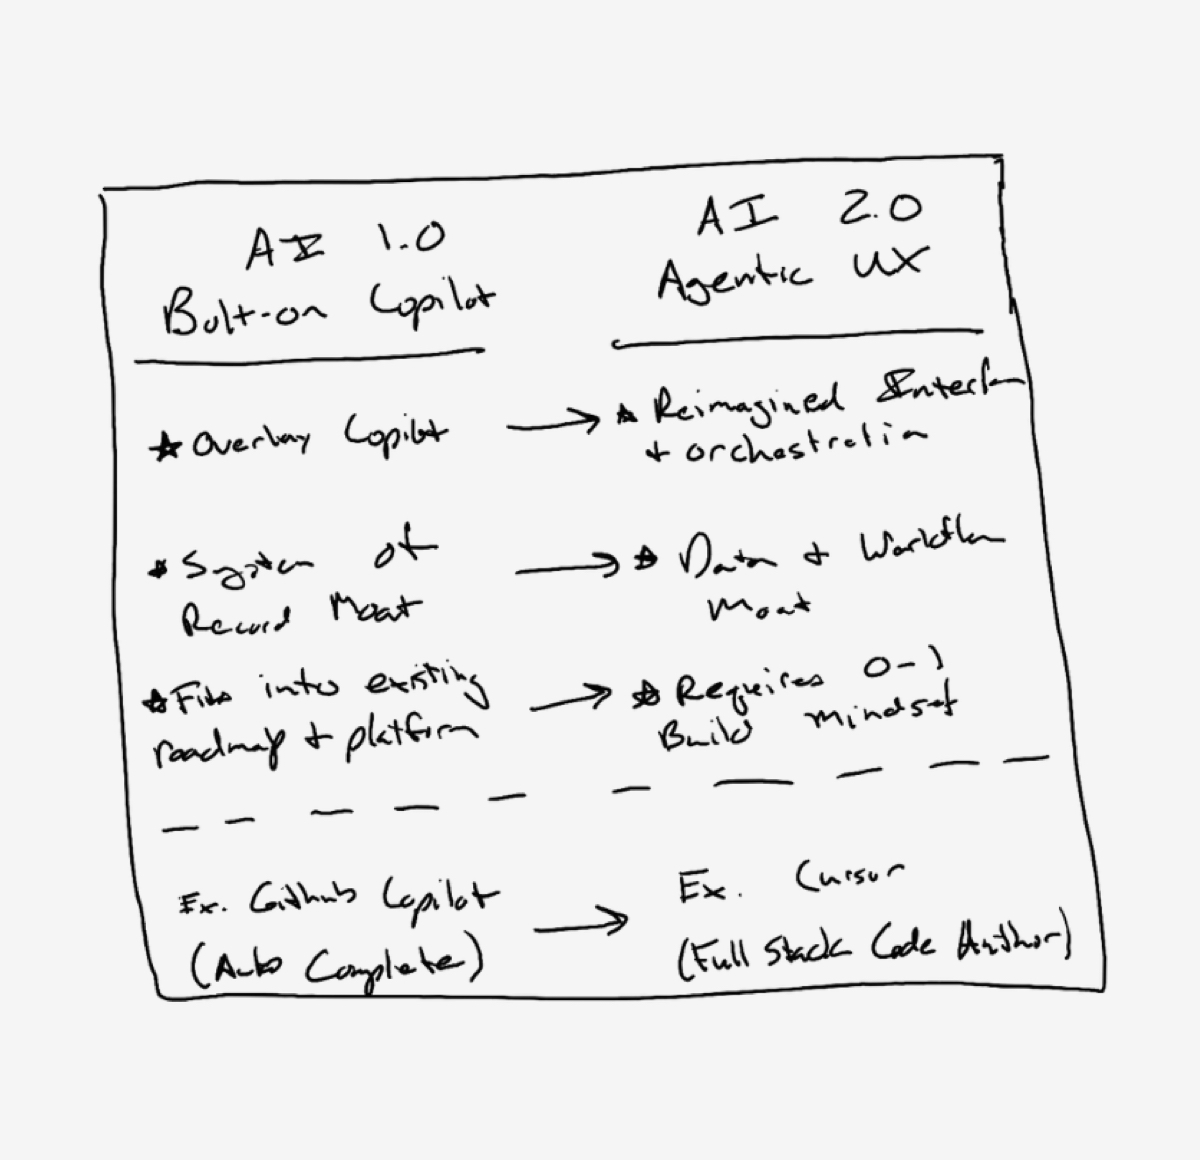 AI 1.0
Bolt-on Copilot
AI 2.0
Agentic UX
Overlay Copilot
Reimagined Interfa
+ orchestration
System of
Record Moat
Data + Workflow
Moat
Fits into existing
roadmap + platform
Requires 0-1
Build mindset
Ex. Github Copilot
(Auto Complete)
Ex. Cursor
(Full Stack Code Author)